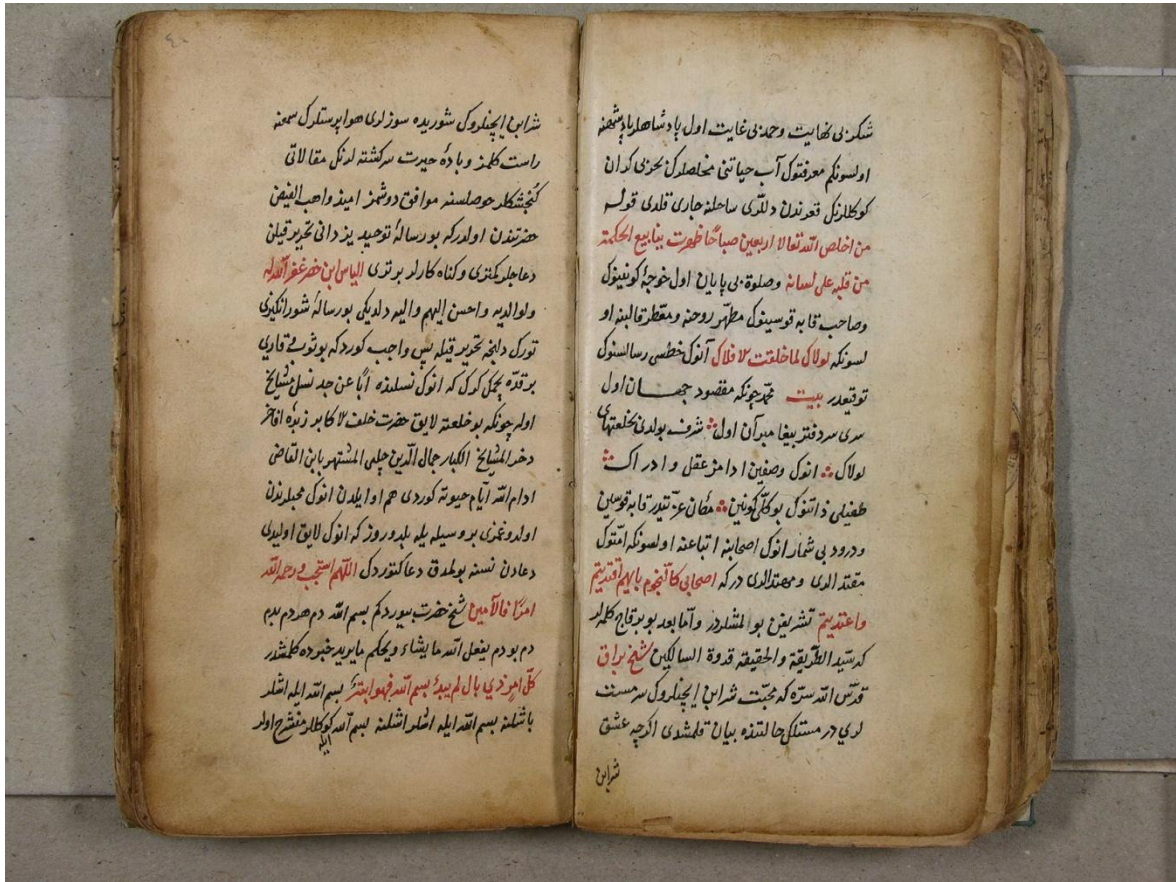 شكر بی نهایت وحمد بی غایت اول پادشاهلر پادشهنه
اولسونكم معرفتوك آب حیاتنی مخلصلرك بحر بی كران
كوكللرنك قعرندن دللری ساحلنه جاری قلدی قوله
من اخلص الله تعالا اربعین صباحًا ظهرت ینابیع الحكمة
من قلبه علی لسانه وصلوة بی پایان اول خوجۀ كونینوك
وصاحب قابه قوسینوك مطهّر روحنه ومعطّر قالبنه او
لسونكه لولاك لما خلقت الافلاك آنوك خطسی رسالسنوك
توقیعدر بیت محمّد چونكه مقصود جهان اول
سری سردفتر پیغامبران اول شرف بولدی بخلعتهای
لولاك انوك وصفین ادامز عقل و ادراك
طفیلی ذاتنوك بو كلّی كونین مكان عزّتیدر قابه قوسین
ودرود بی شمار انوك اصحابنه اتباعنه اولسونكه امّتوك
مقتدالری ومهتدالری دركه اصحابی كالنّجوم بایّهم اقتدیتم
واهتدیتم تشریفن بولمشلردر وامّا بعد بو برقاچ كلمه لر
كه سیّد الطّریقة والحقیقة قدوة السالكین شیخ براق
قدّس الله سرّه كه محبّت شرابن ایچنلروك سرمست
لری در مستلك حالتنده بیان قلمشدی اكرچه عشق
شرابن
شرابن ایچنلروك شوریده سوزلری هواپرستلرك سمعنه
راست كلمز وبادۀ حیرت سركشته لرنك مقالاتی
كنجشكلر حوصلسنه موافق دوشمز امیذ واهب الفیض
حضرتندن اولدركه بو رسالۀ توحید یزدانی تحریر قیلن
دعاجلر كمتری وكناه كارلر برتری الیاس ابن خضر غفر الله له
ولوالدیه واحسن الیهم والیه دلدیكی بو رسالۀ شورانكیزی
تورك دلنجه تحریر قیله پس واجب كوردكه بو ثوبی قاری
بر قدّه بچمك كرك كه انوك نسلنده ابًا عن جد نسل مشایخ
اوله چونكه بو خلعته لایق حضرت خلف الاكابر زبدۀ افاخر
دخر المشایخ الكبار جمال الدّین چلبی المشتهر بابن القاضی
ادام الله ایّام حیوته كوردی هم اوایلدن انوك محبلرندن
اولدوغمزی بو وسیله یله بلدوروز كه انوك لایق اولیدی
دعادن نسنه بولمدق دعا كتوردك اللّهم استجب ورحم الله
امرًا قال آمین شیخ حضرت بیوردكم بسم الله دم هردم بدم
دم بودم یفعل الله ما یشاء ویحكم ما یرید خبرده كلمشدر
كلّ امرٍ ذی بال لم یبدأ بسم الله فهو ابتر بسم الله ایله اشلر
باشلنه بسم الله ایله اشلر اشلنه بسم الله ایله كوكللر منشرح اولر